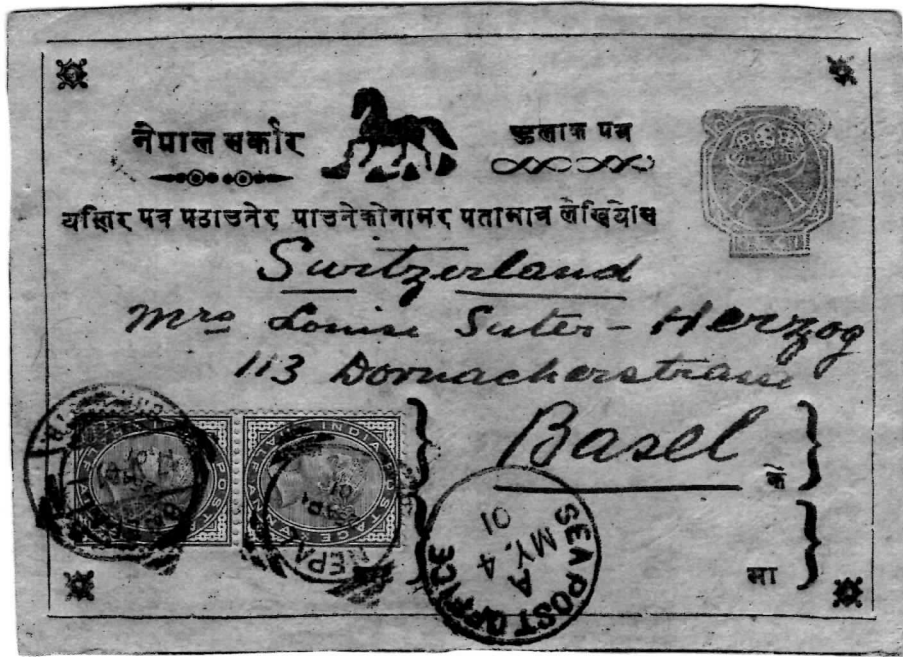 नेपाल सर्कार
हुलाक पत्र
यसतिर पत्र पठाउनेर पाउनेकोनामर पतामात्र लेखियोस
Switzerland
Mrs Louise Suter-Herzog
113 Dornacherstrasse
Basel
के
मा
POSTAGE
HALF ANNA
POSTAGE &
HALF ANNA
NEPAL
01
SEA POST OFFICE
A
MY. 4
01